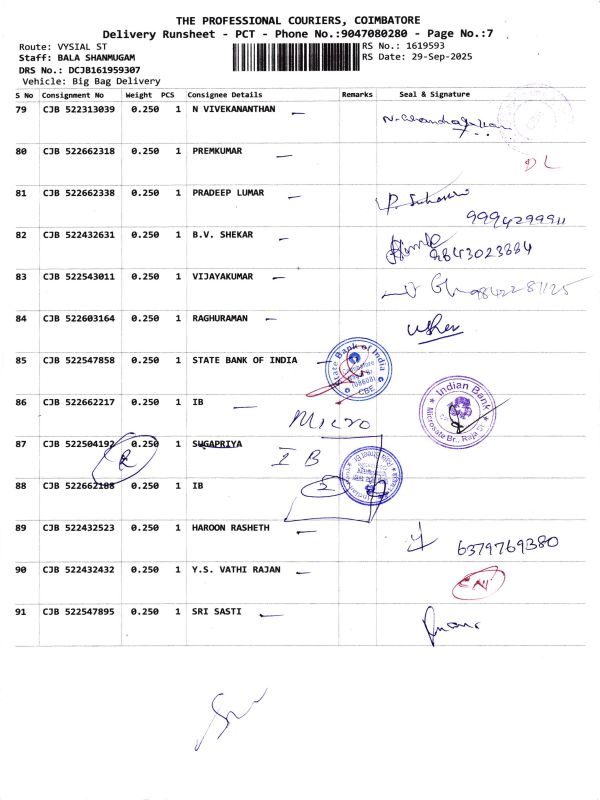 THE PROFESSIONAL COURIERS, COIMBATORE
Delivery Runsheet - PCT - Phone No.:9047080280 - Page No.:7
Route: VYSIAL ST
RS No.: 1619593
Staff: BALA SHANMUGAM
RS Date: 29-Sep-2025
DRS No.: DCJB161959307
Vehicle: Big Bag Delivery
S No Consignment No Weight PCS Consignee Details Remarks Seal & Signature
79 CJB 522313039 0.250 1 N VIVEKANANTHAN
80 CJB 522662318 0.250 1 PREMKUMAR DL
81 CJB 522662338 0.250 1 PRADEEP LUMAR
9994299911
82 CJB 522432631 0.250 1 B.V. SHEKAR
9843023884
83 CJB 522543011 0.250 1 VIJAYAKUMAR 9842281125
84 CJB 522603164 0.250 1 RAGHURAMAN usher
85 CJB 522547858 0.250 1 STATE BANK OF INDIA
State Bank of India
CBE
86 CJB 522662217 0.250 1 IB
MICRO
Indian Bank
Microsate Br., Raja St.
87 CJB 522504192 0.250 1 SUGAPRIYA
IB
88 CJB 522662188 0.250 1 IB 2
89 CJB 522432523 0.250 1 HAROON RASHETH
6379769380
90 CJB 522432432 0.250 1 Y.S. VATHI RAJAN
91 CJB 522547895 0.250 1 SRI SASTI